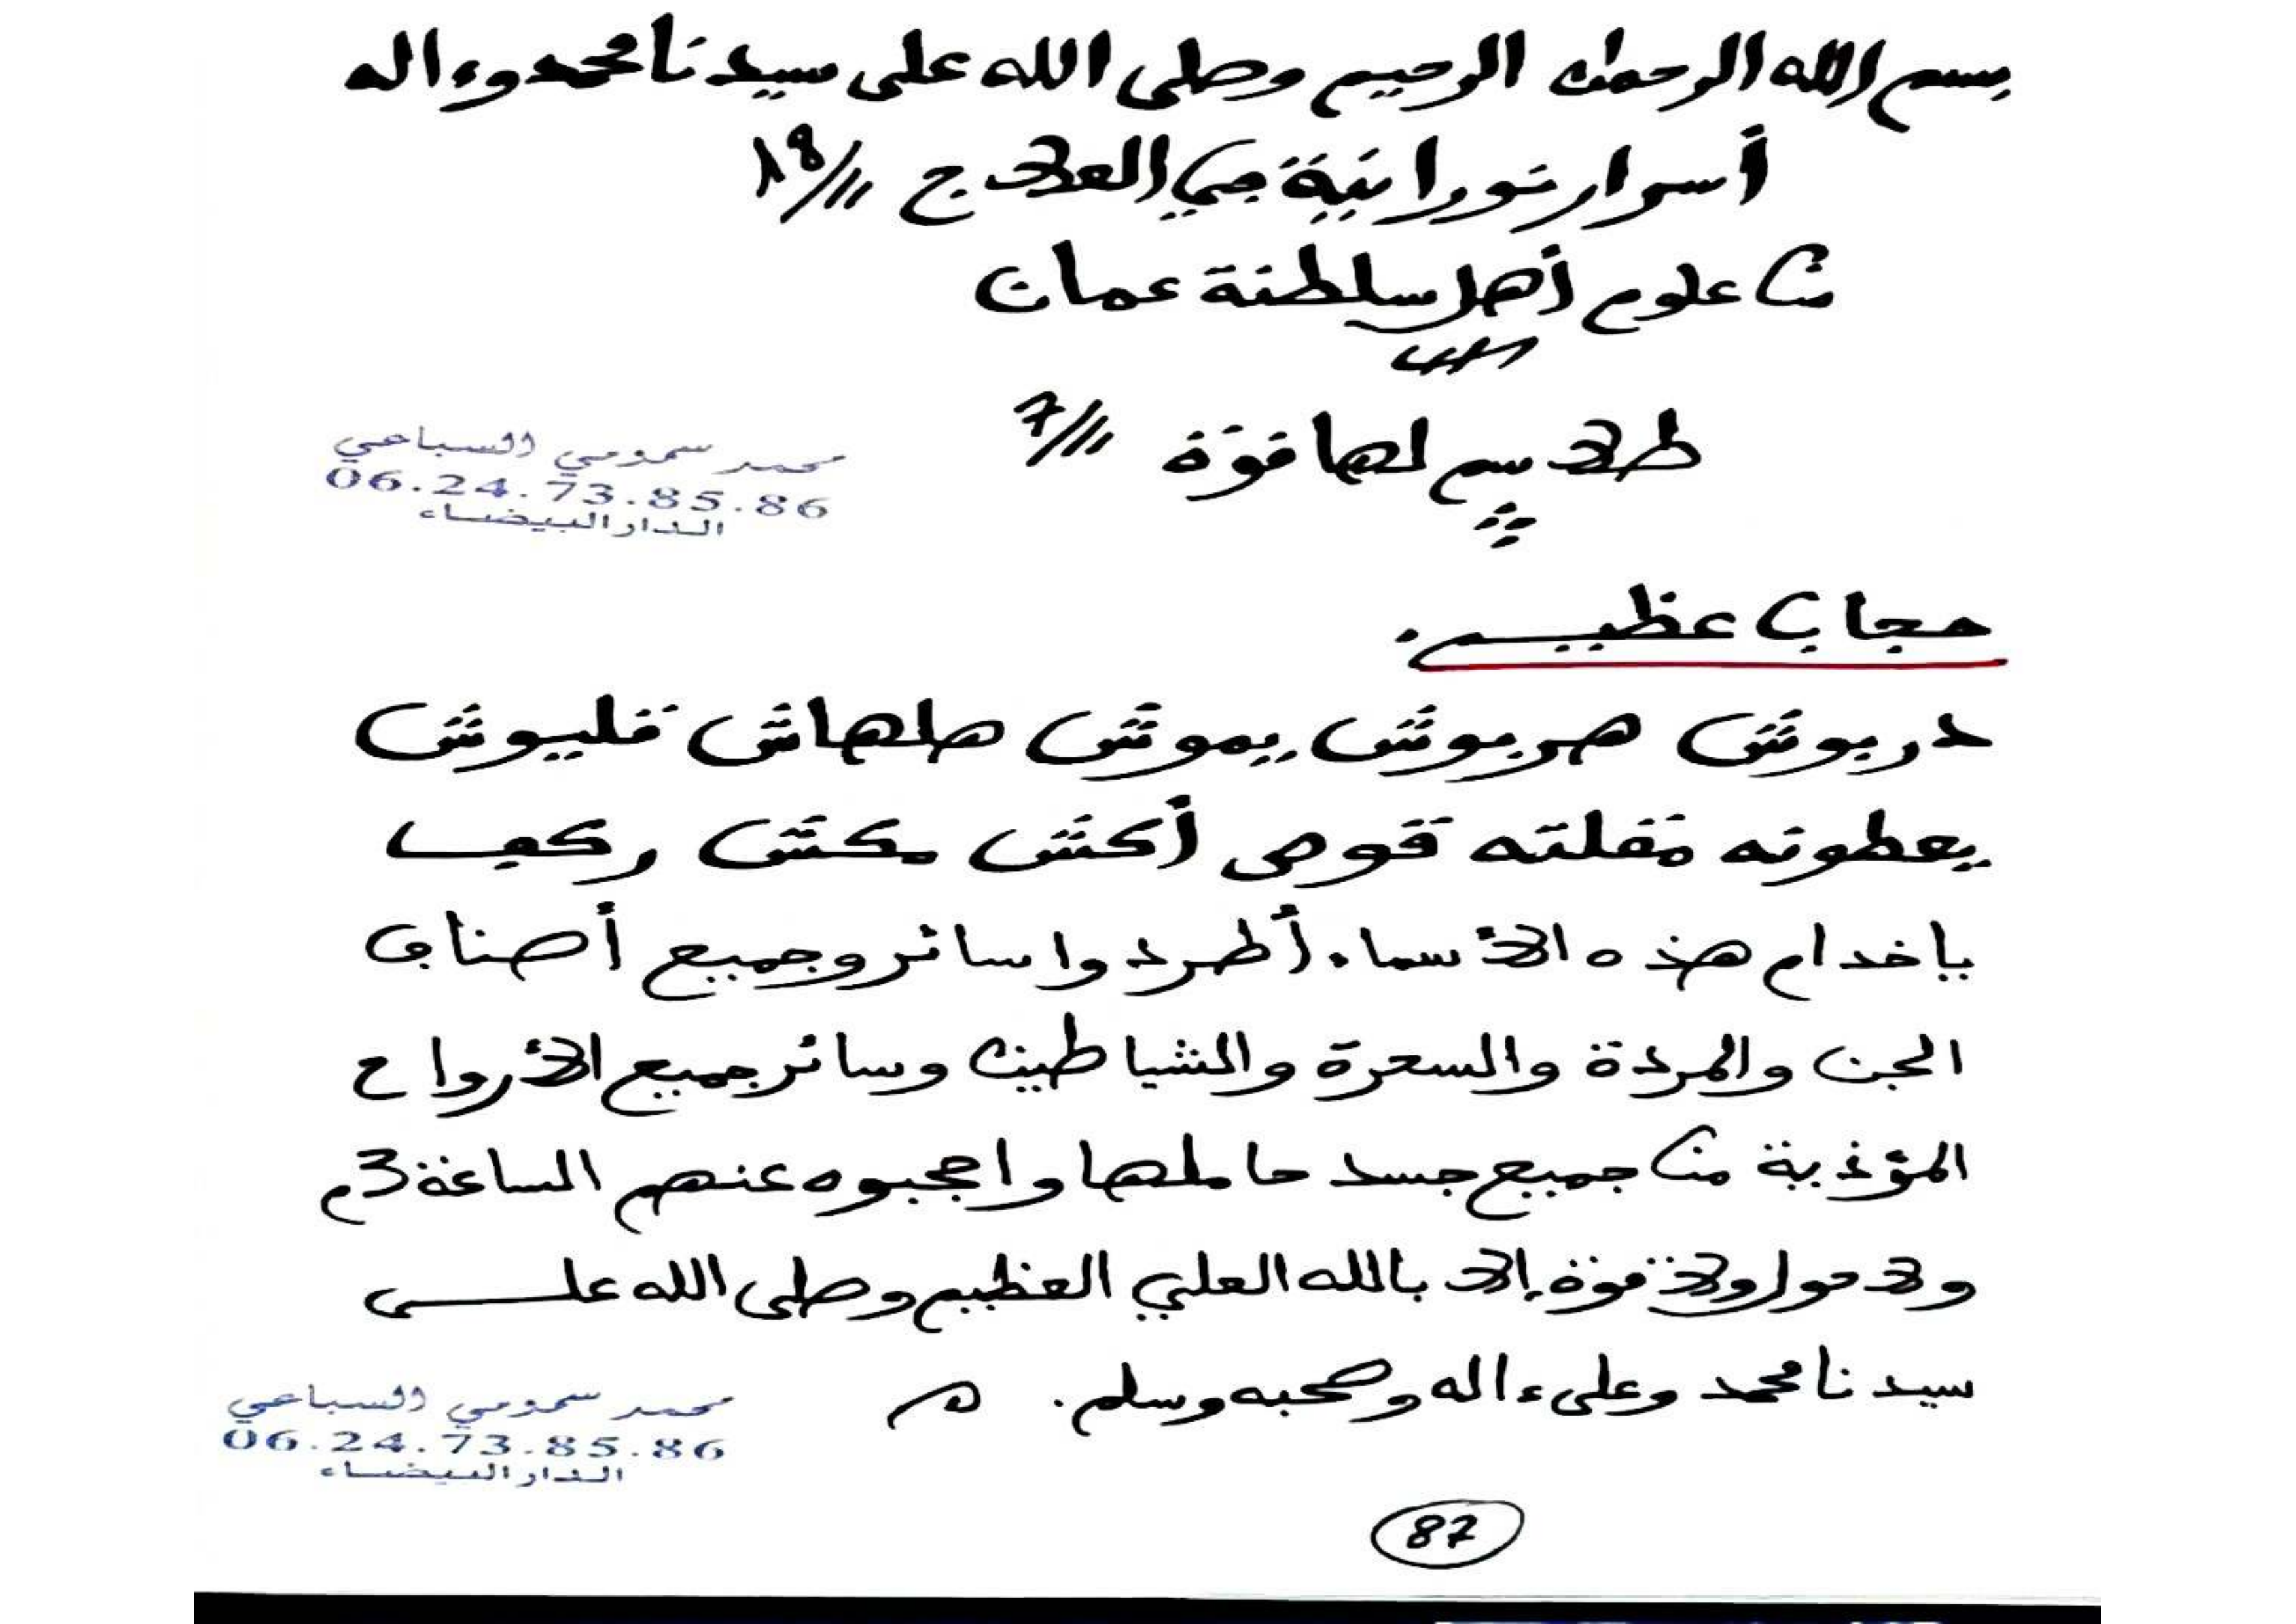 بسم الله الرحمن الرحيم وصلى الله على سيدنا محمد وءاله
أسرار نورانية في العلاج
من علوم أهل سلطنة عمان
طلاسم لها قوة 7
محمد سمومي السباعي
06.24.73.85.86
الدار البيضاء
حجاب عظيم.
دربوش هربوش يموش طهاش قليوش
يعطونه تفلته قوص أكش مكش ركب
ياخدام هذه الأسماء أطردوا سائر وجميع أصناف
الجن والمردة والسحرة والشياطين وسائر جميع الأرواح
المؤذية من جميع جسد حاملها واحجبوه عنهم الساعة 3م
ولا حول ولا قوة إلا بالله العلي العظيم وصلى الله على
سيدنا محمد وعلى ءاله وصحبه وسلم.
محمد سمومي السباعي
06.24.73.85.86
الدار البيضاء
87